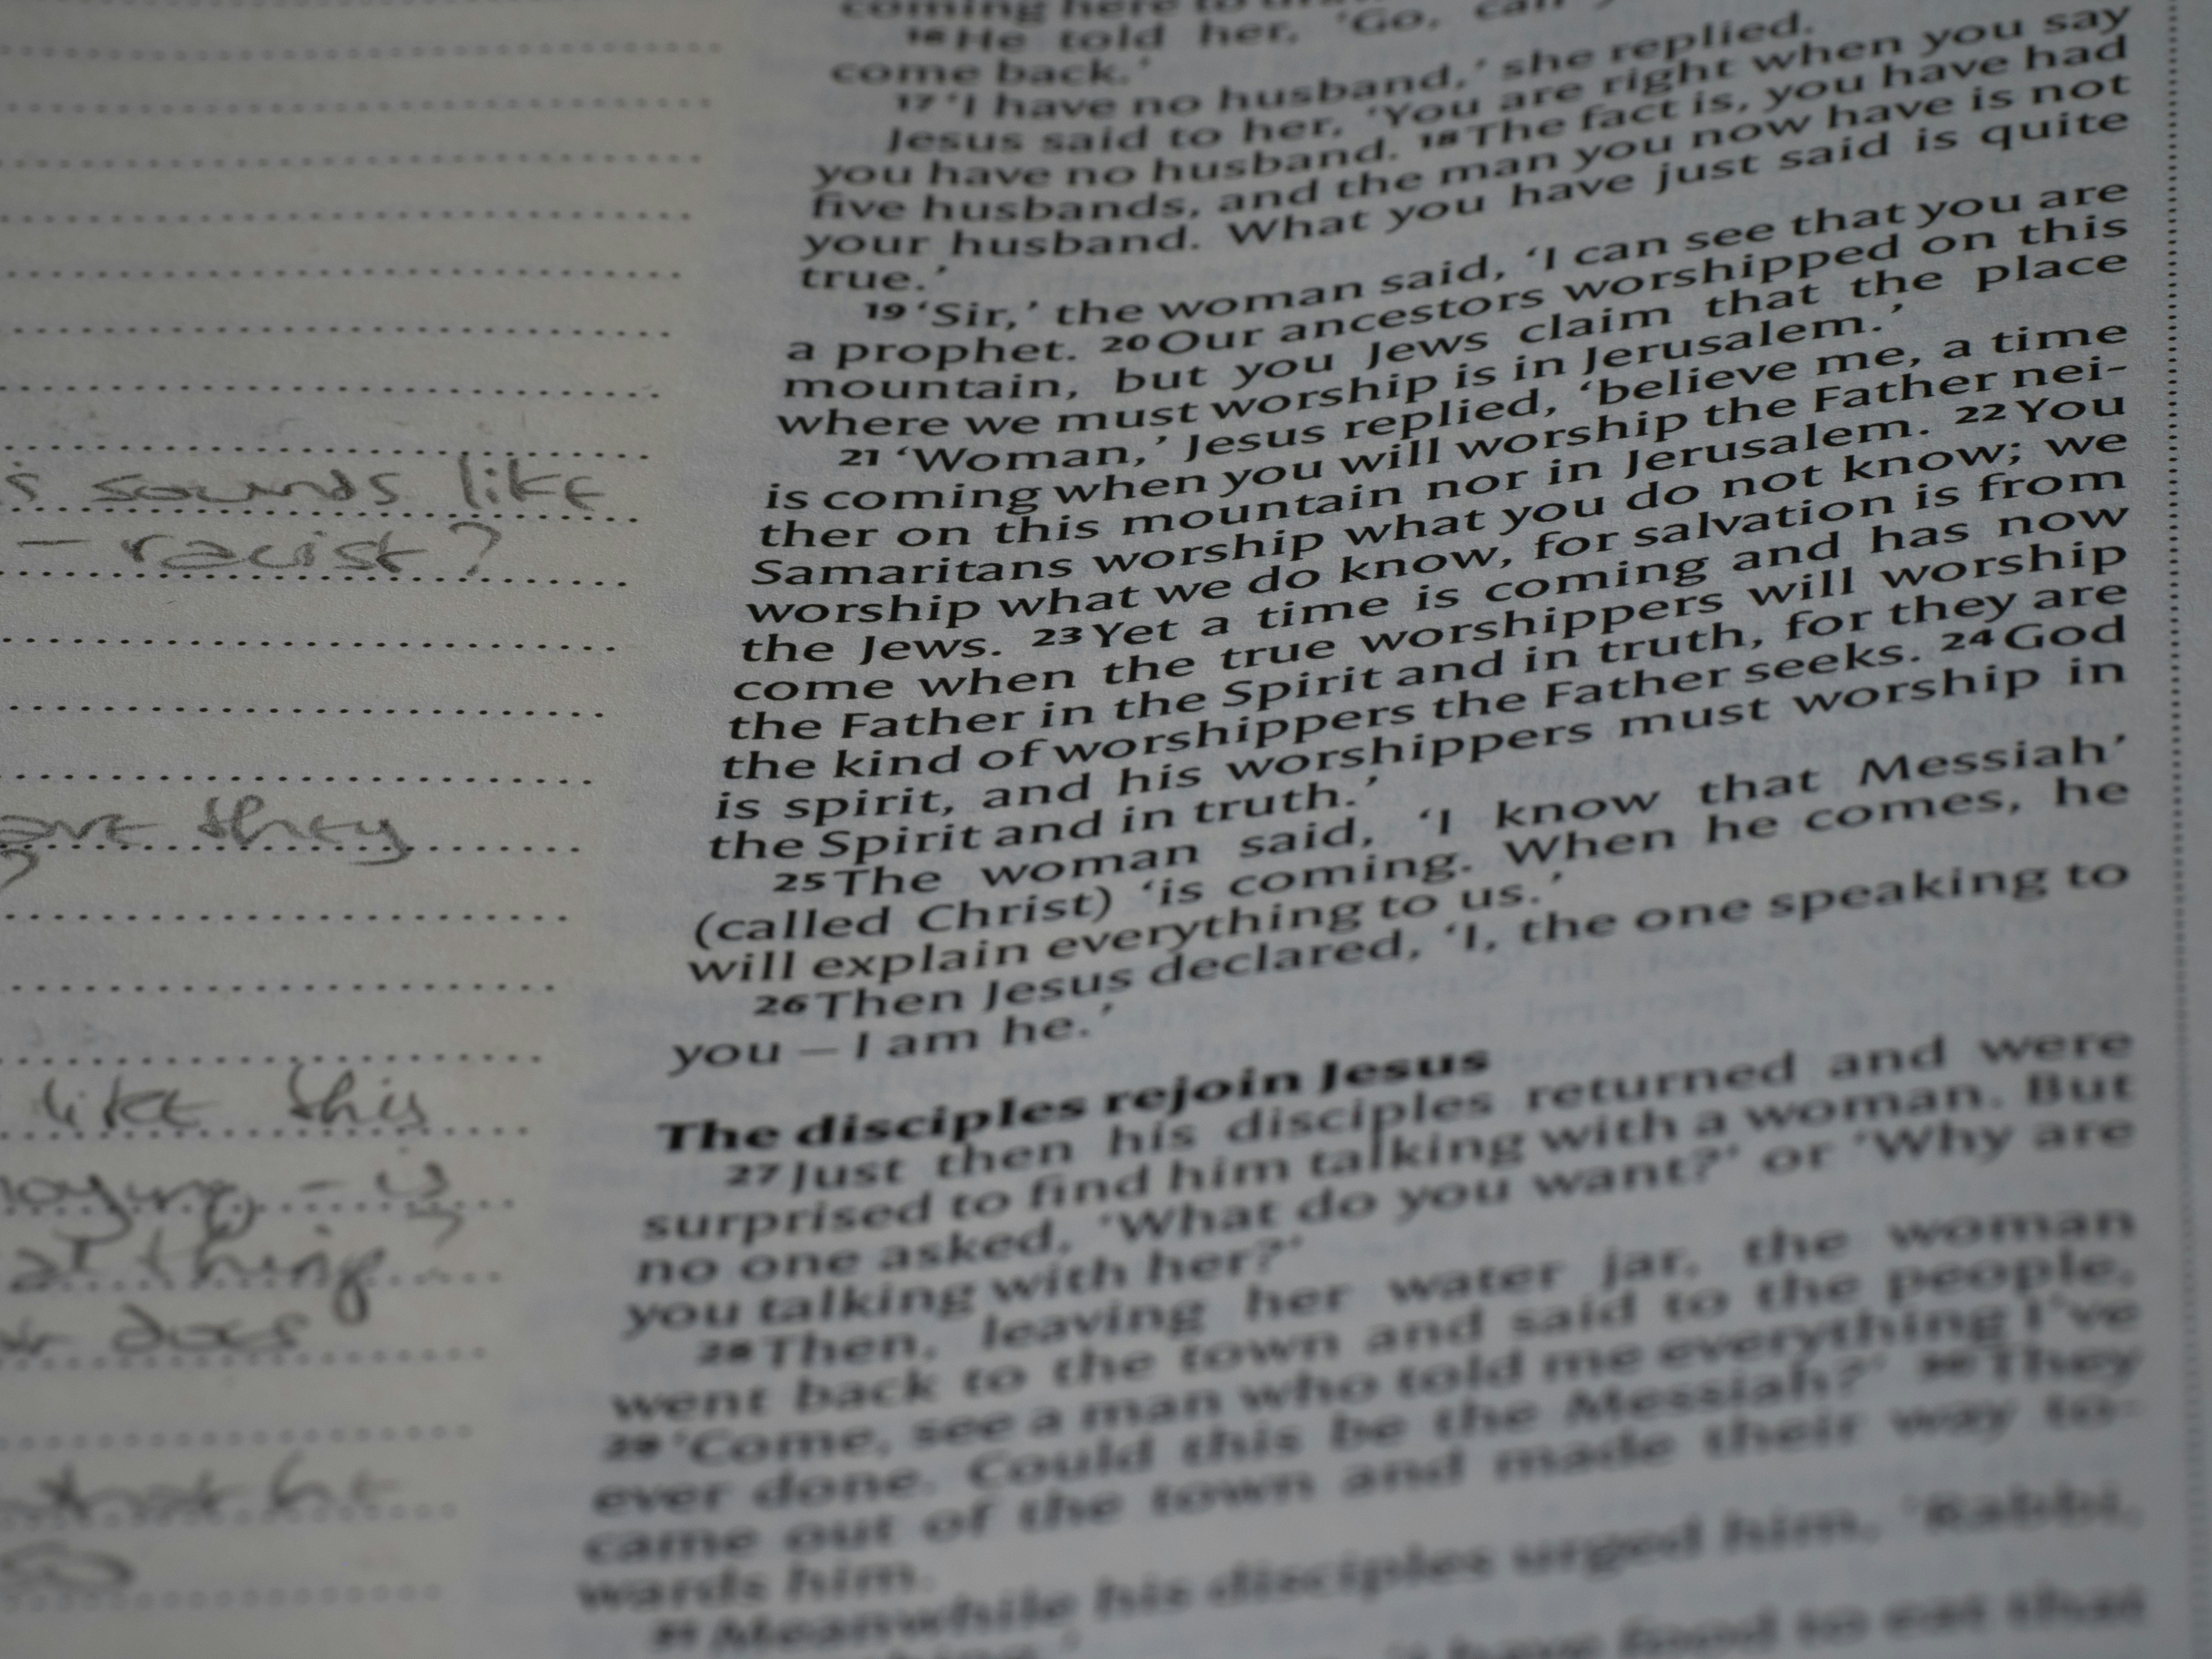 s sounds like
– racist?
they
like this
– is
thing
does
coming here to
16 He told her, 'Go, call
come back.'
17 'I have no husband,' she replied.
Jesus said to her, 'You are right when you say
you have no husband. 18 The fact is, you have had
five husbands, and the man you now have is not
your husband. What you have just said is quite
true.'
19 'Sir,' the woman said, 'I can see that you are
a prophet. 20 Our ancestors worshipped on this
mountain, but you Jews claim that the place
where we must worship is in Jerusalem.'
21 'Woman,' Jesus replied, 'believe me, a time
is coming when you will worship the Father nei-
ther on this mountain nor in Jerusalem. 22 You
Samaritans worship what you do not know; we
worship what we do know, for salvation is from
the Jews. 23 Yet a time is coming and has now
come when the true worshippers will worship
the Father in the Spirit and in truth, for they are
the kind of worshippers the Father seeks. 24 God
is spirit, and his worshippers must worship in
the Spirit and in truth.'
25 The woman said, 'I know that Messiah'
(called Christ) 'is coming. When he comes, he
will explain everything to us.'
26 Then Jesus declared, 'I, the one speaking to
you – I am he.'
The disciples rejoin Jesus
27 Just then his disciples returned and were
surprised to find him talking with a woman. But
no one asked, 'What do you want?' or 'Why are
you talking with her?'
28 Then, leaving her water jar, the woman
went back to the town and said to the people,
29 'Come, see a man who told me everything I've
ever done. Could this be the Messiah?' 30 They
came out of the town and made their way to-
wards him.
31 Meanwhile his disciples urged him, 'Rabbi,
food to eat that